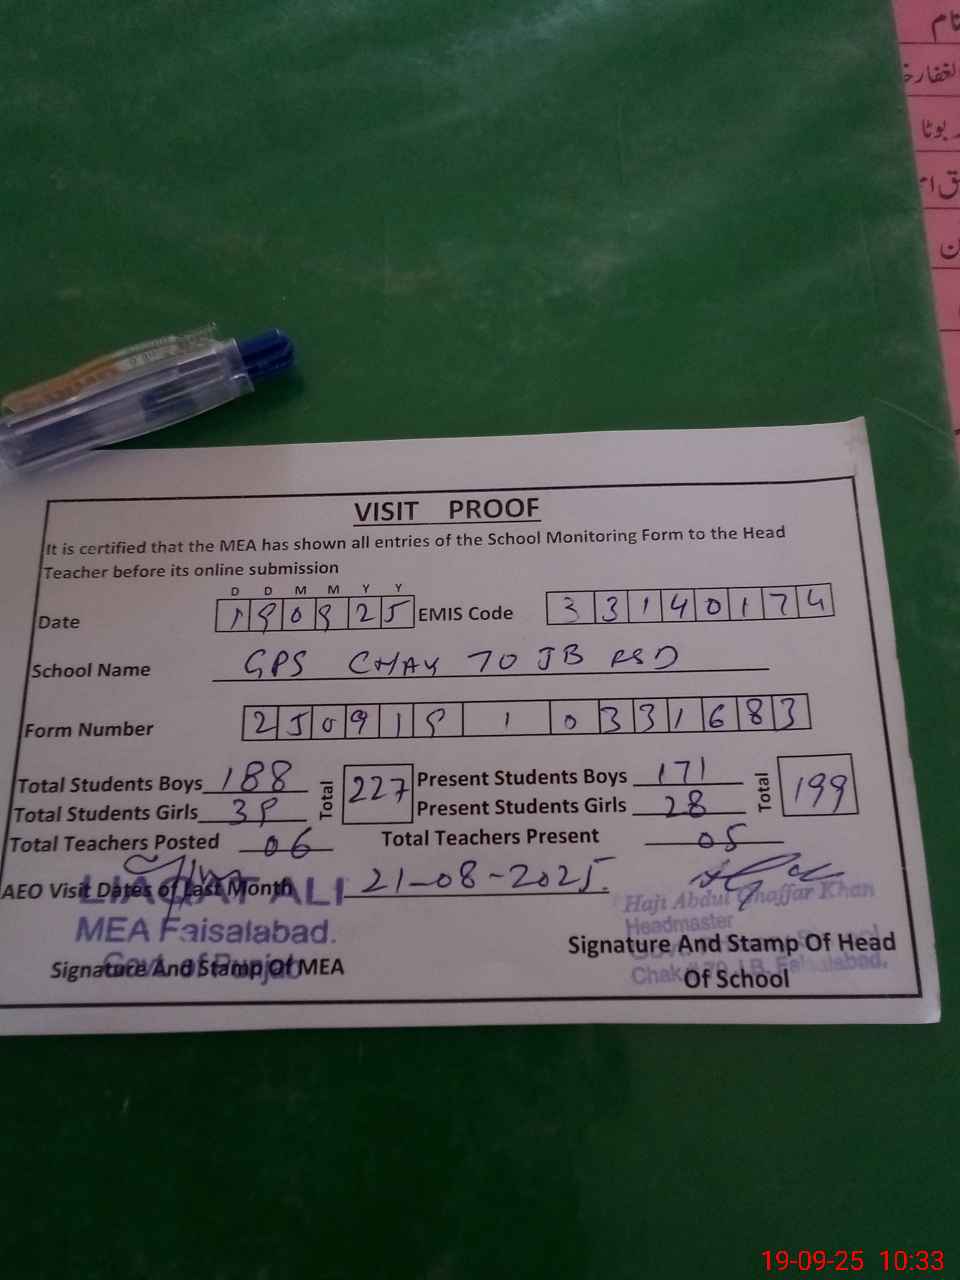 نام
بوٹا
VISIT PROOF
It is certified that the MEA has shown all entries of the School Monitoring Form to the Head
Teacher before its online submission
D D M M Y Y
Date 190925 EMIS Code 33140174
School Name GPS CHAK 70 JB FSD
Form Number 250919 1 0331683
Total Students Boys 188 Total 227 Present Students Boys 171 Total 199
Total Students Girls 39 Present Students Girls 28
Total Teachers Posted 06 Total Teachers Present 05
AEO Visit Dates of Last Month 21-08-2025.
LIAQAT ALI
MEA Faisalabad.
Govt. of Punjab
Signature And Stamp Of MEA
Haji Abdul Ghaffar Khan
Headmaster
Signature And Stamp Of Head
Of School
Chak # 70 J.B. Faisalabad.
19-09-25 10:33